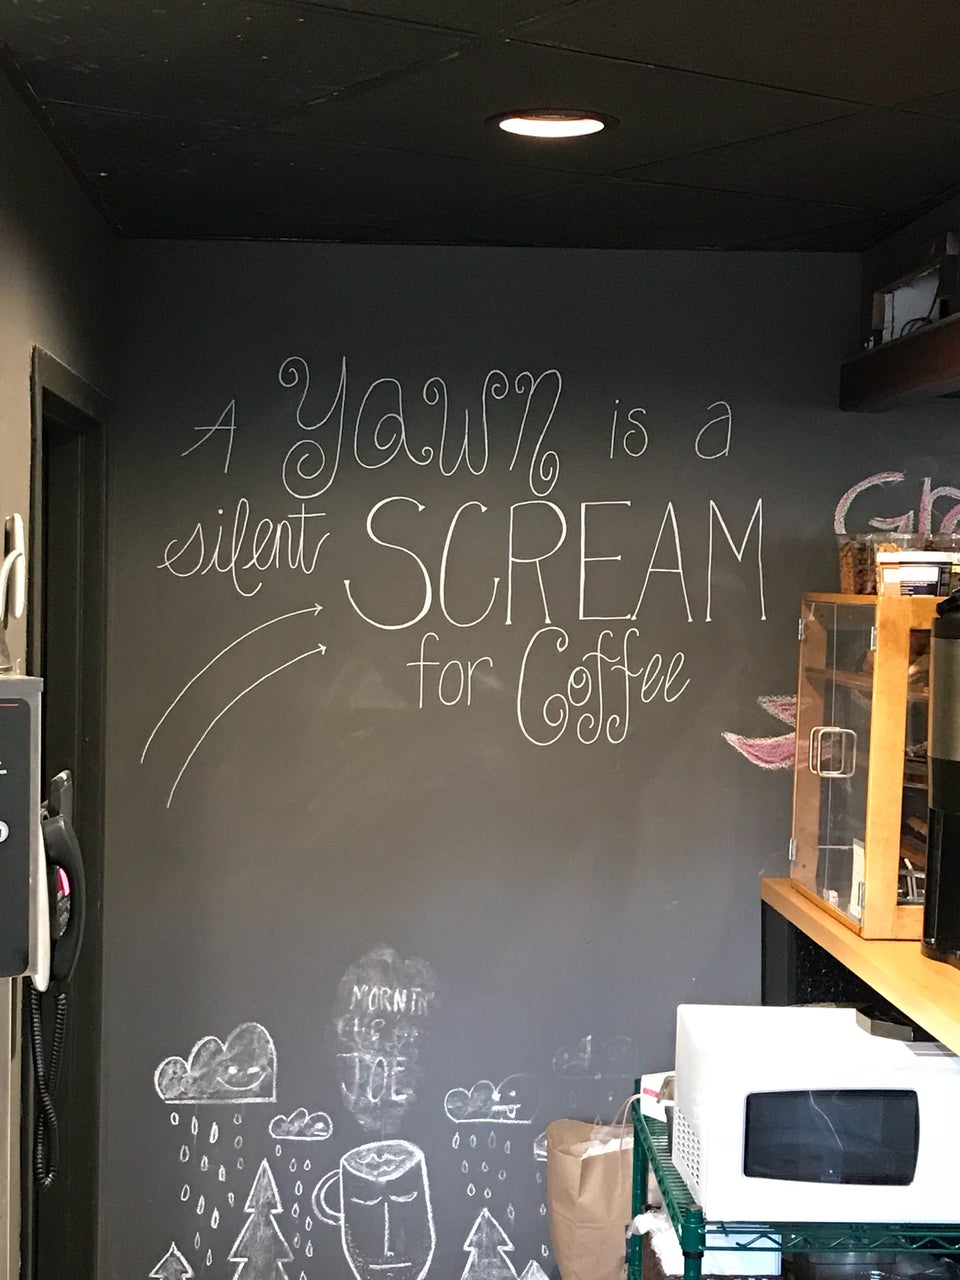 A Yawn is a
silent SCREAM
for Coffee
MORNIN'
JOE